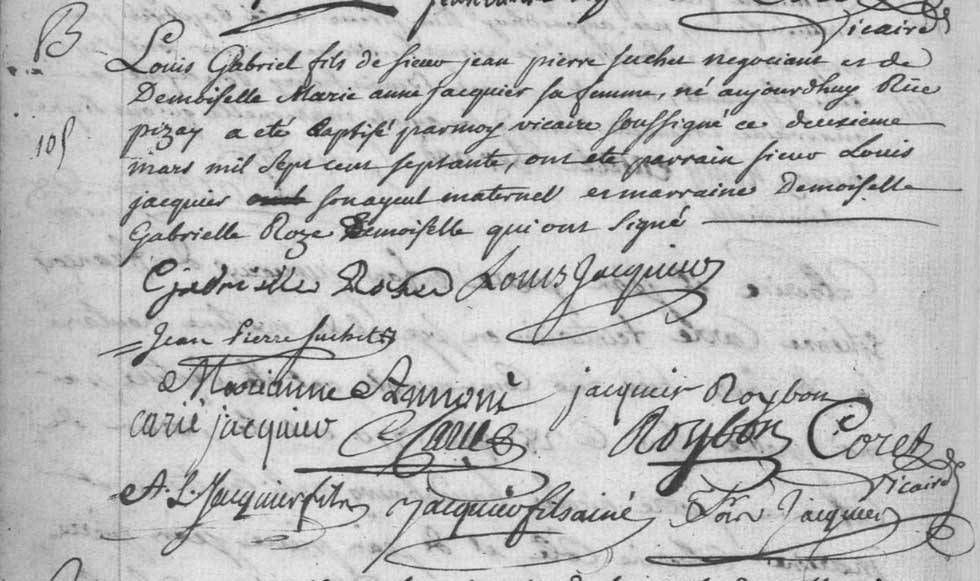 Vicaire
B
Louis Gabriel fils de sieur jean pierre suchet negociant et de
Demoiselle Marie anne jacquier sa femme, né aujourdhuy Rüe
pizay a eté baptisé par moy vicaire soussigné ce deuxieme
105
mars mil sept cent septante, ont eté parrain sieur Louis
jacquier son ayeul maternel et marraine Demoiselle
Gabrielle Roze Demoiselle qui ont signé
Gabrielle Roze Louis Jacquier
Jean Pierre Suchet
Marianne jacquier Roybon
carié jacquier Carié Roybon Coret
vicaire
A. L. Jacquier fils jacquier fils ainé Jacquier